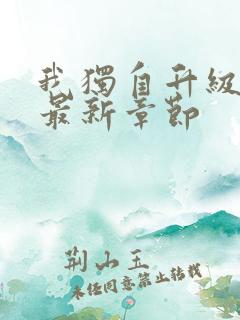 我獨自升級
最新章節
荆山玉
未经同意禁止转载